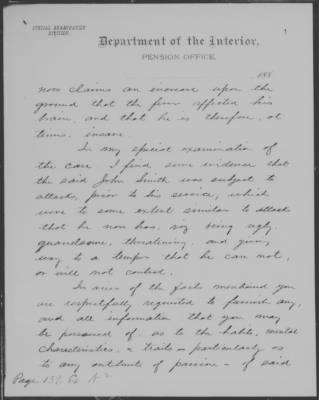 SPECIAL EXAMINATION
DIVISION.
Department of the Interior,
PENSION OFFICE,
188
now claims an increase upon the
ground that the fever affected his
brain and that he is therefore, at
times, insane.
In my special examination of
the case I find some evidence that
the said John Smith was subject to
attacks, prior to his service, which
were to some extent similar to attack
that he now has, say being ugly,
quarrelsome, threatening, and giving
way to a temper that he can not,
or will not control.
In view of the facts mentioned you
are respectfully requested to furnish any,
and all information that you may
be possessed of, as to the habits, mental
characteristics, traits - particularly as
to any outbursts of passion - of said
Page 139